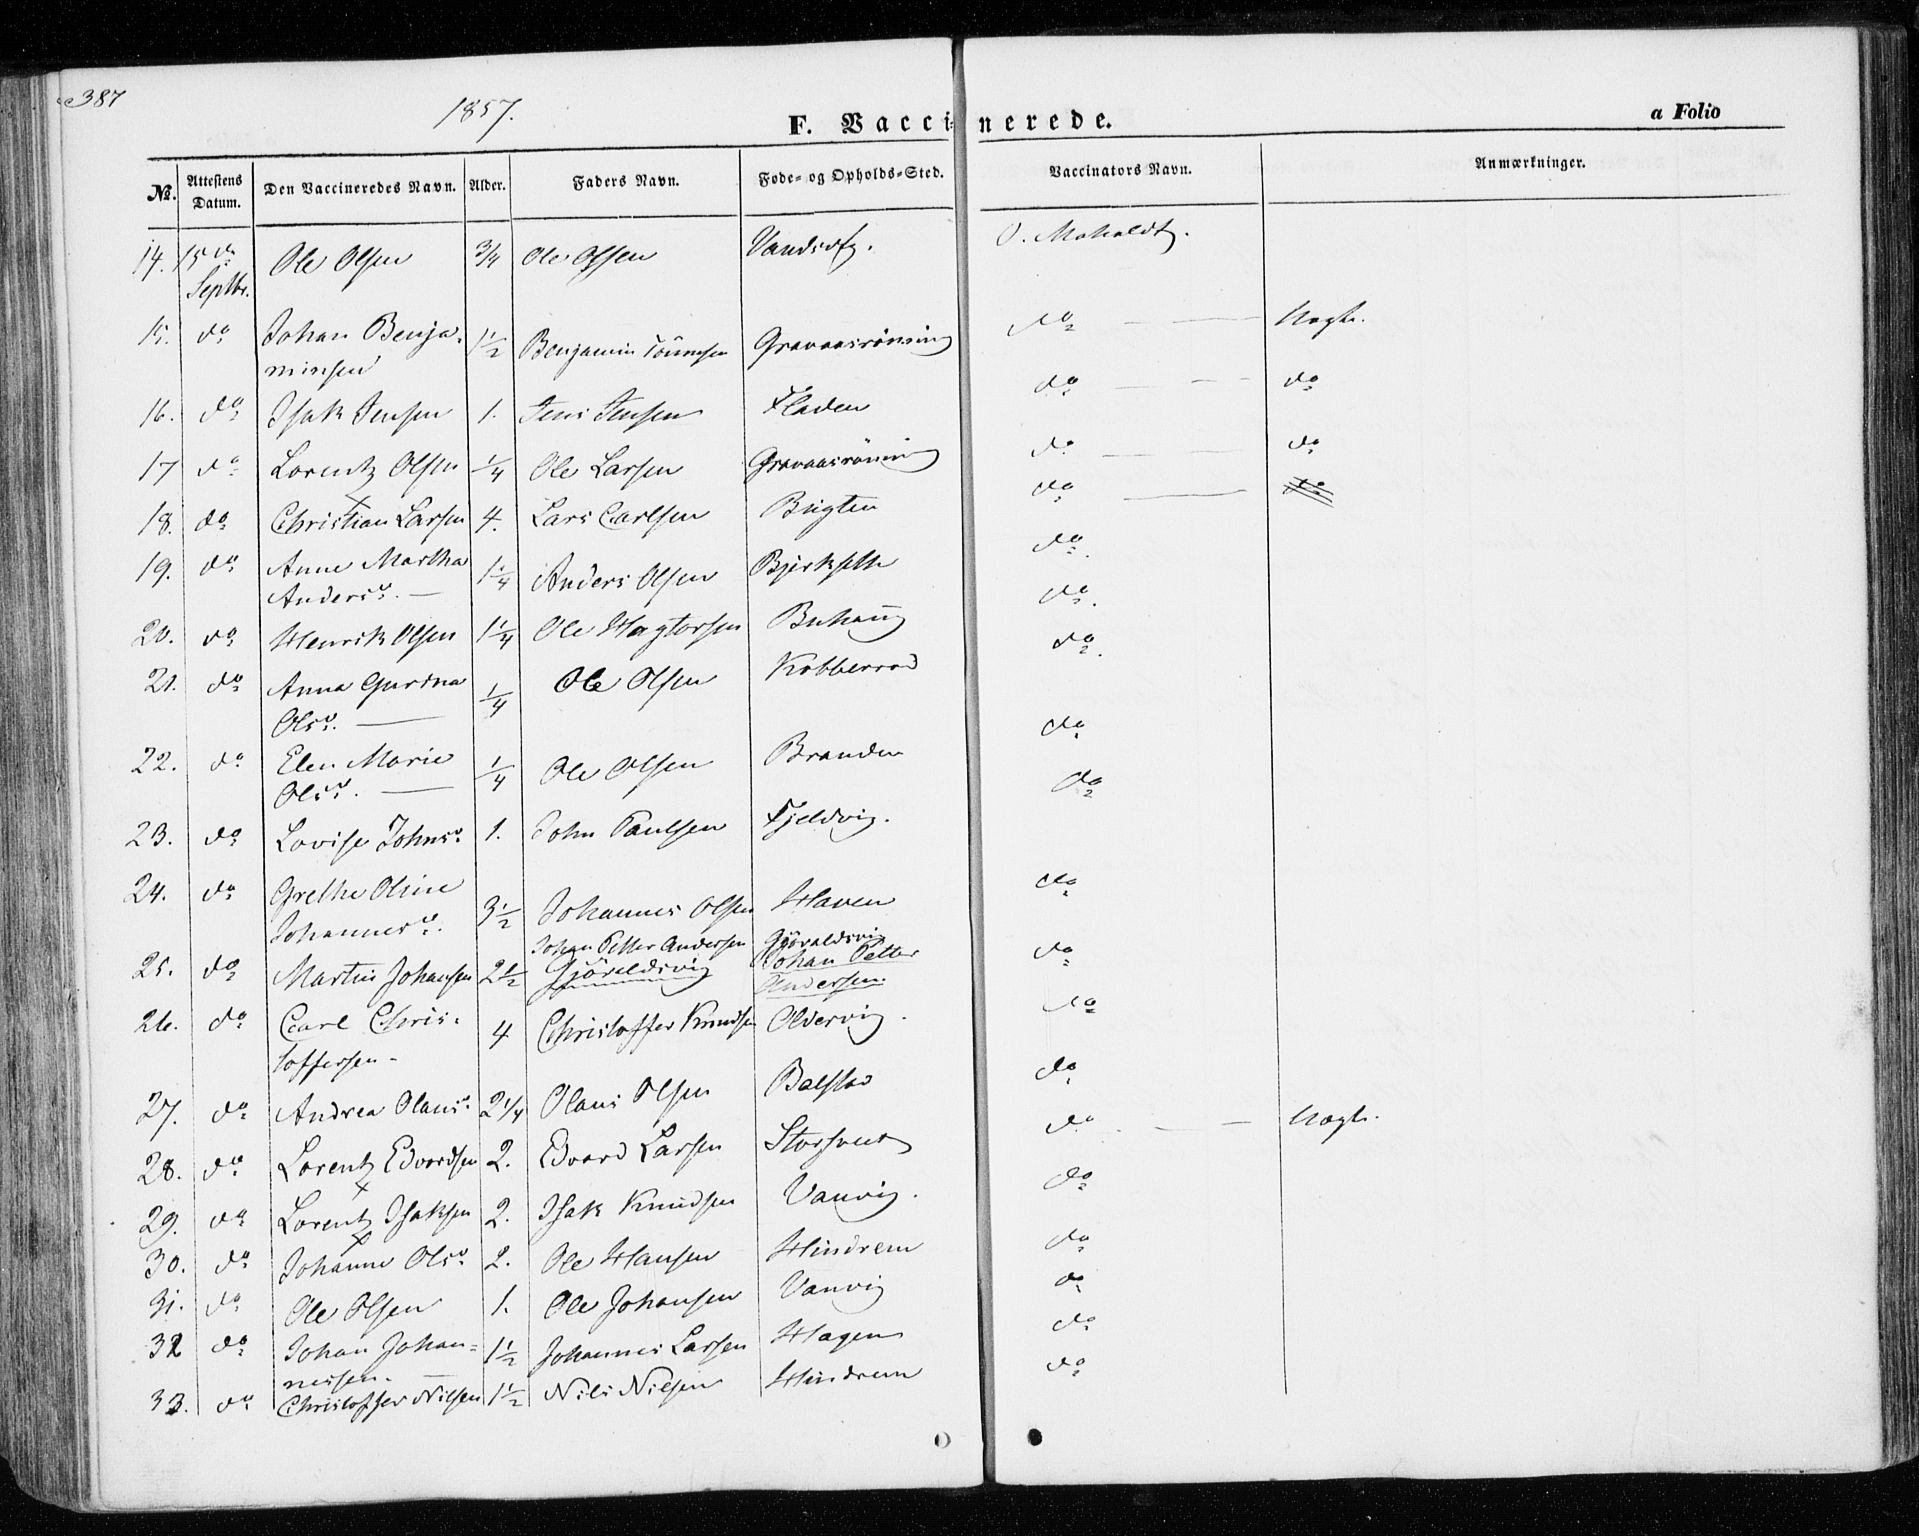 387
1857.
F. Vaccinerede.
a Folio
No. Attestens Datum. Den Vaccineredes Navn. Alder. Faders Navn. Føde- og Opholds-Sted. Vaccinators Navn. Anmærkninger.
14. 15de Septbr. Ole Olsen 3/4 Ole Olsen O. Moholdt.
15. do Johan Benja-
minsen 1 1/2 Benjamin Tönnesen Gravaasröning do — — Nogle.
16. do Isak Jensen 1. Jens Jensen Fladen do — — do
17 do Lorentz Olsen 1/4 Ole Larsen Gravaasröning do — — do
18. do Christian Larsen 4. Lars Carlsen Brigten do — do
19. do Anne Martha
Andersd. — 1 1/4 Anders Olsen do.
20. do Henrik Olsen 1 1/4 Ole Hagtorsen Buhaug do.
21. do Anna Gurina
Olsd. — 1/4 Ole Olsen Kobberrod do.
22. do Elen Marie
Olsd. — 1/4 Ole Olsen Branden do
23. do Lovise Johnsd. 1. John Paulsen Fjeldvig. do
24. do Grethe Oline
Johannesd. 3 1/2 Johannes Olsen Haven do
Johan Petter Andersen Gjöraldsvig
25. do Martin Johansen 2 1/2 Gjöraldsvig Johan Petter
Andersen. do
26. do Carl Chris-
toffersen- 4 Christoffer Knudsen Oldervig. do
27. do Andrea Olausd. 2 1/4 Olaus Olsen Balstad do
28. do Lorentz Edvardsen 2. Edvard Larsen do — — Nogle.
29. do Lorentz Isaksen 2. Isak Knudsen Vanvig. do
30. do Johanne Olsd. 2. Ole Hansen Hindrem do
31. do Ole Olsen 1. Ole Johansen Vanvig do
32 do Johan Johan-
nesen. — 1 1/2 Johannes Larsen Hagen do
33. do Christoffer Nilsen 1 1/2 Nils Nilsen Hindrem do